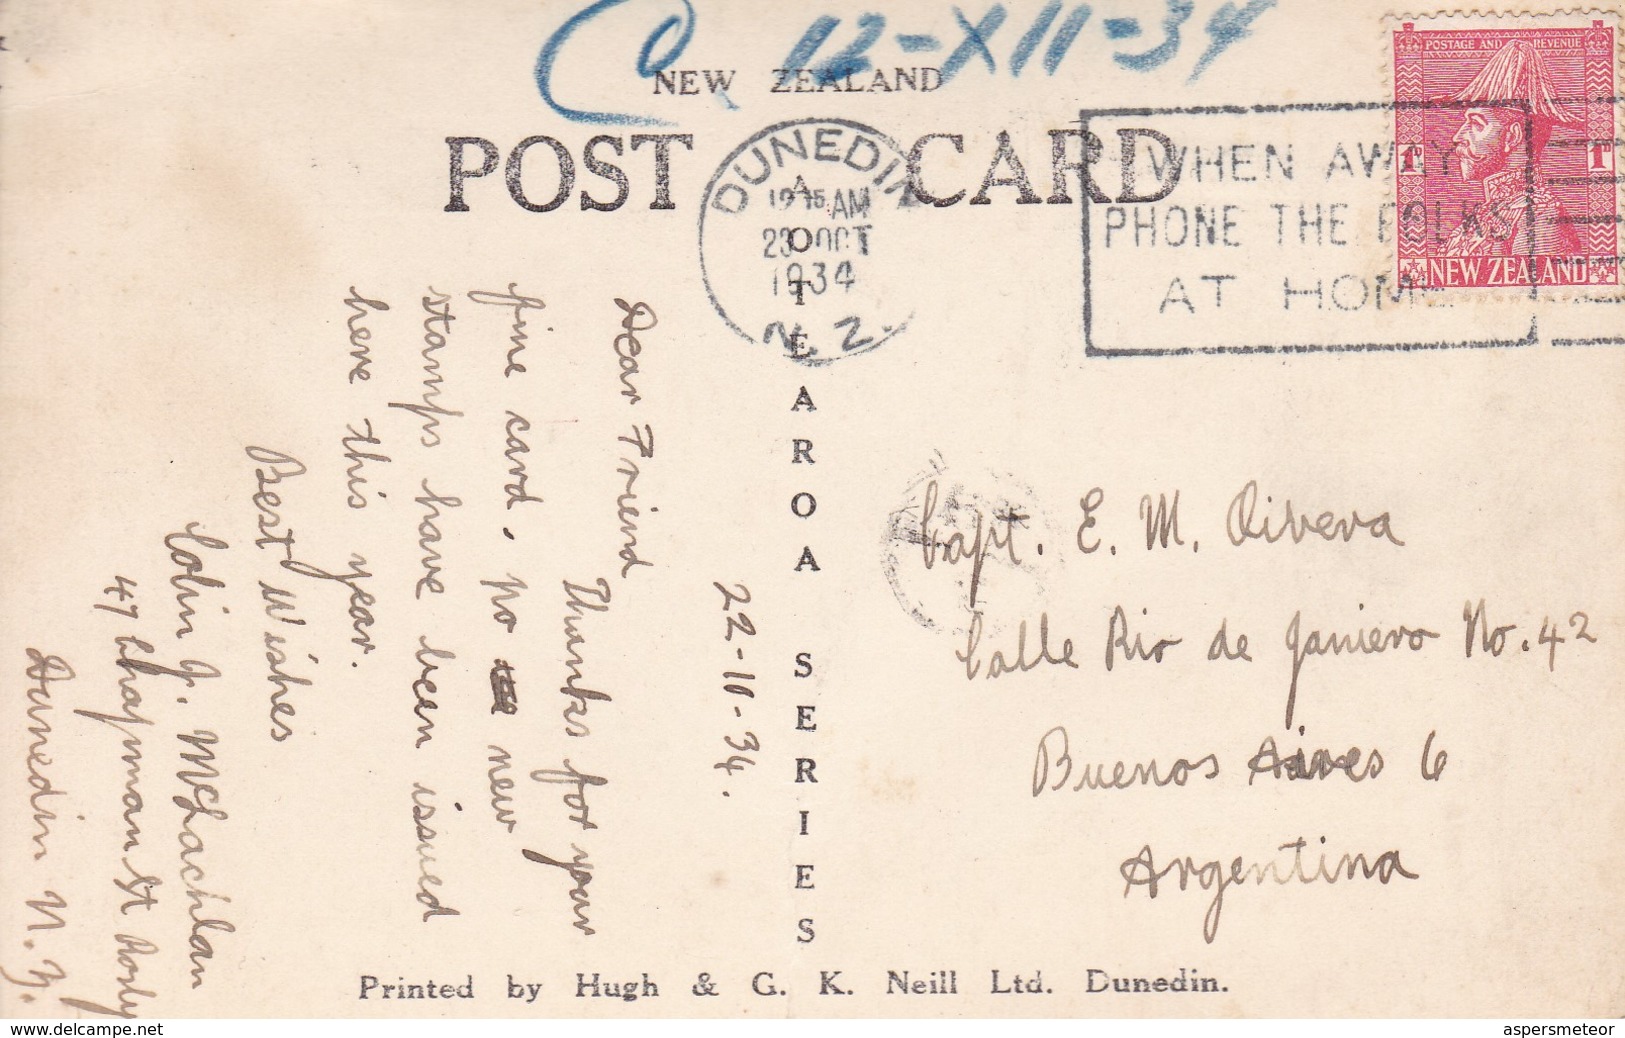 C 12-XII-34
NEW ZEALAND
POST CARD
DUNEDIN
AM
23 OCT
1934
N.Z.
WHEN AWAY
PHONE THE FOLKS
AT HOME
POSTAGE AND REVENUE
1D 1D
NEW ZEALAND
AOTEAROA SERIES
22-10-34.
Dear Friend
Thanks for your
fine card, no new
stamps have been issued
here this year.
Best Wishes
Colin J. McLachlan
47 Chapman St
Dunedin N.Z.
Capt. E. M. Rivera
Calle Rio de Janiero No. 42
Buenos Aires 6
Argentina
Printed by Hugh & G. K. Neill Ltd. Dunedin.
delcampe.net
aspersmeteor